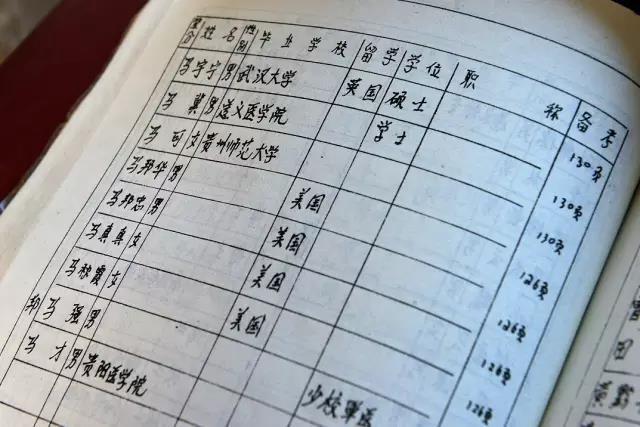 姓 名 性别 毕业学校 留学 学位 职 称 备考
马宇宁 男 武汉大学 英国 硕士 130页
马 冀 男 遵义医学院 学士 130页
马 可 女 贵州师范大学 130页
马邦华 男 美国 126页
马邦忠 男 美国 126页
马真真 女 美国 126页
马 女 美国 126页
马 强 男
马 才 男 贵阳医学院 少校军医